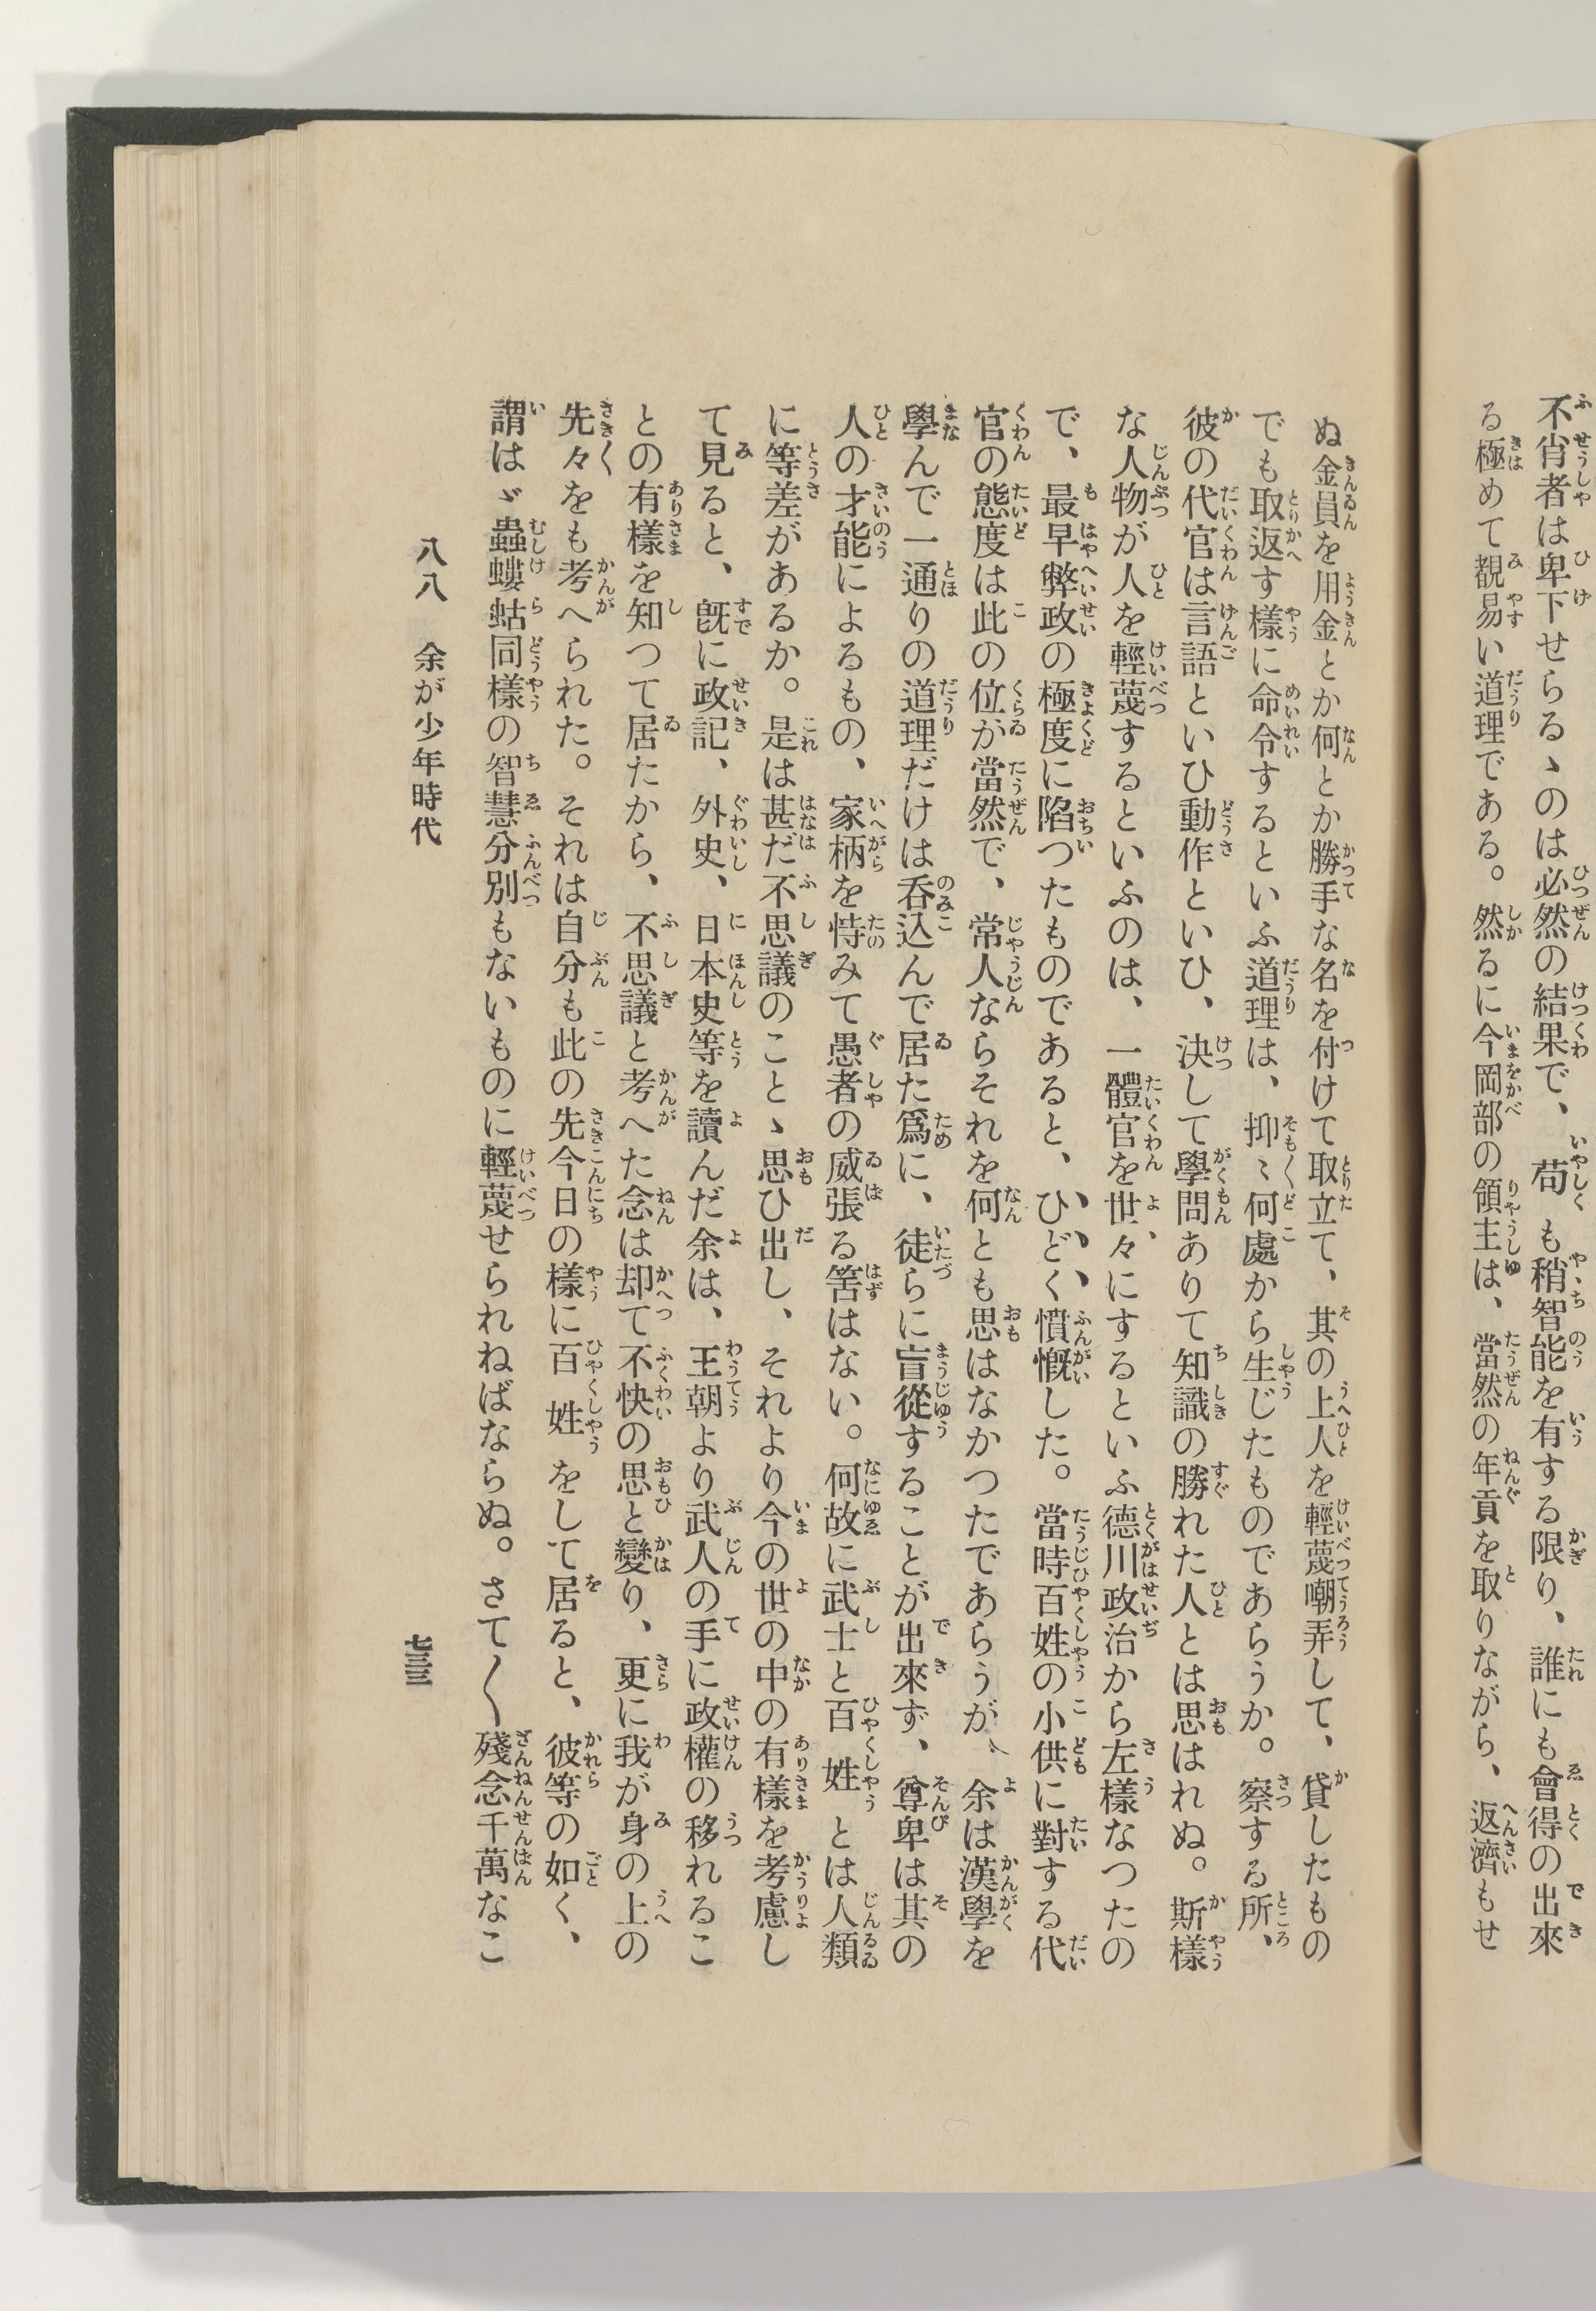 不肖者は卑下せらるゝのは必然の結果で、苟も稍智能を有する限り、誰にも會得の出來
る極めて覩易い道理である。然るに今岡部の領主は、當然の年貢を取りながら、返濟もせ
ぬ金員を用金とか何とか勝手な名を付けて取立て、其の上人を輕蔑嘲弄して、貸したもの
でも取返す樣に命令するといふ道理は、抑〻何處から生じたものであらうか。察する所、
彼の代官は言語といひ動作といひ、決して學問ありて知識の勝れた人とは思はれぬ。斯樣
な人物が人を輕蔑するといふのは、一體官を世々にするといふ德川政治から左樣なつたの
で、最早弊政の極度に陷つたものであると、ひどく憤慨した。當時百姓の小供に對する代
官の態度は此の位が當然で、常人ならそれを何とも思はなかつたであらうが、余は漢學を
學んで一通りの道理だけは呑込んで居た爲に、徒らに盲從することが出來ず、尊卑は其の
人の才能によるもの、家柄を恃みて愚者の威張る筈はない。何故に武士と百姓とは人類
に等差があるか。是は甚だ不思議のことゝ思ひ出し、それより今の世の中の有樣を考慮し
て見ると、旣に政記、外史、日本史等を讀んだ余は、王朝より武人の手に政權の移れるこ
との有樣を知つて居たから、不思議と考へた念は却て不快の思と變り、更に我が身の上の
先々をも考へられた。それは自分も此の先今日の樣に百姓をして居ると、彼等の如く、
謂はゞ蟲螻蛄同樣の智慧分別もないものに輕蔑せられねばならぬ。さて〱殘念千萬なこ
八八 余が少年時代
七三三